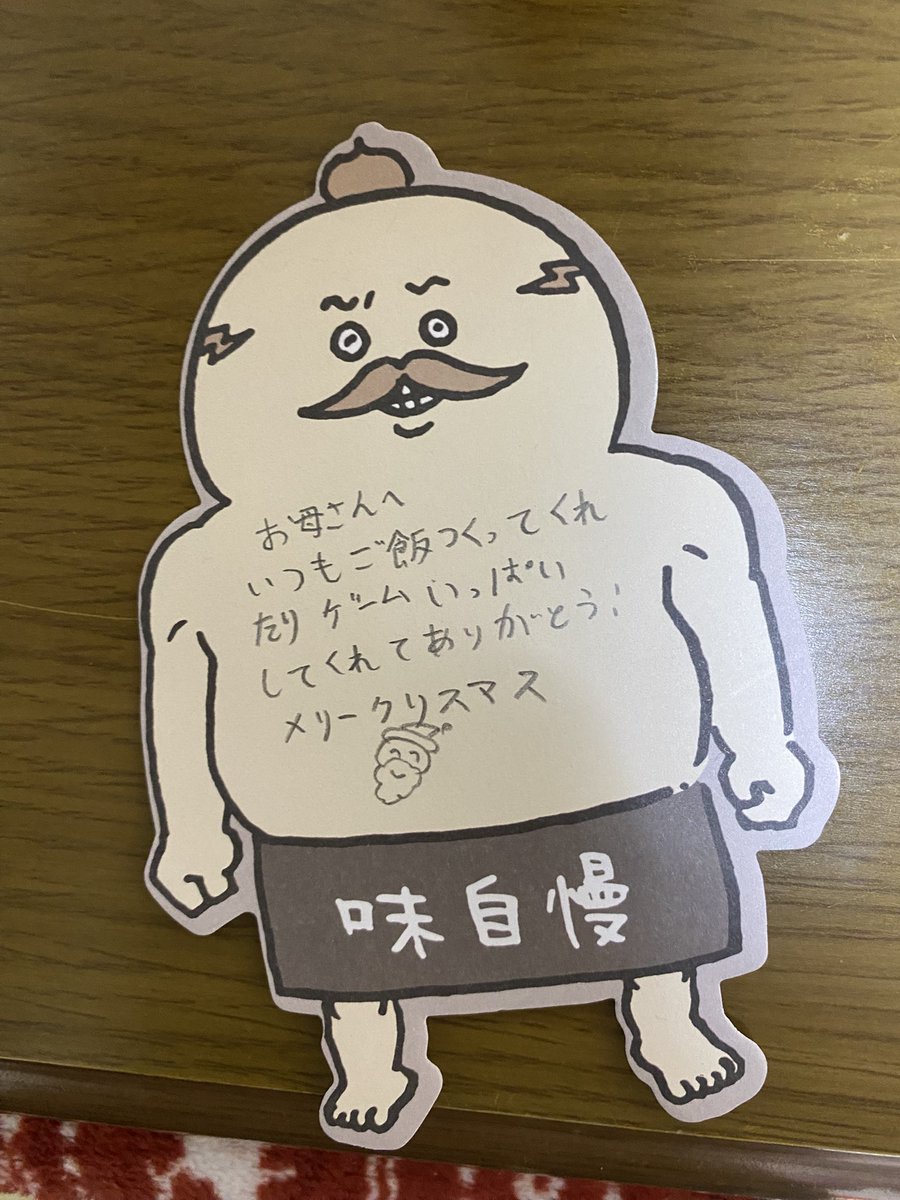 お母さんへ
いつもご飯つくってくれ
たり ゲームいっぱい
してくれてありがとう!
メリークリスマス
味自慢